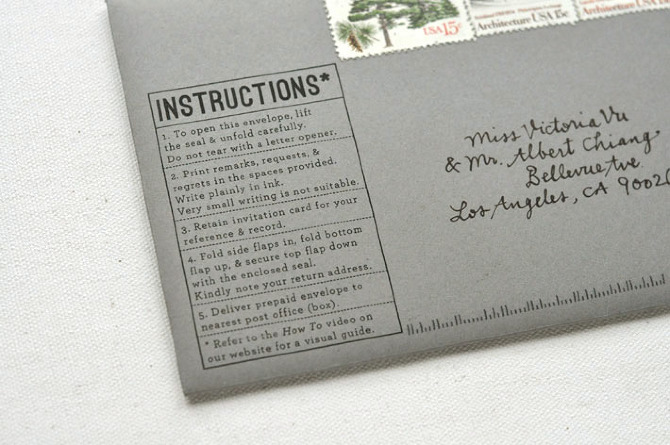 USA 15c
Architecture USA 15c
Architecture USA 15c
INSTRUCTIONS*
1. To open this envelope, lift
the seal & unfold carefully.
Do not tear with a letter opener.
2. Print remarks, requests, &
regrets in the spaces provided.
Write plainly in ink.
Very small writing is not suitable.
3. Retain invitation card for your
reference & record.
4. Fold side flaps in, fold bottom
flap up, & secure top flap down
with the enclosed seal.
Kindly note your return address.
5. Deliver prepaid envelope to
nearest post office (box).
* Refer to the How To video on
our website for a visual guide.
Miss Victoria Vu
& Mr. Albert Chiang
Bellevue Ave.
Los Angeles, CA 90026